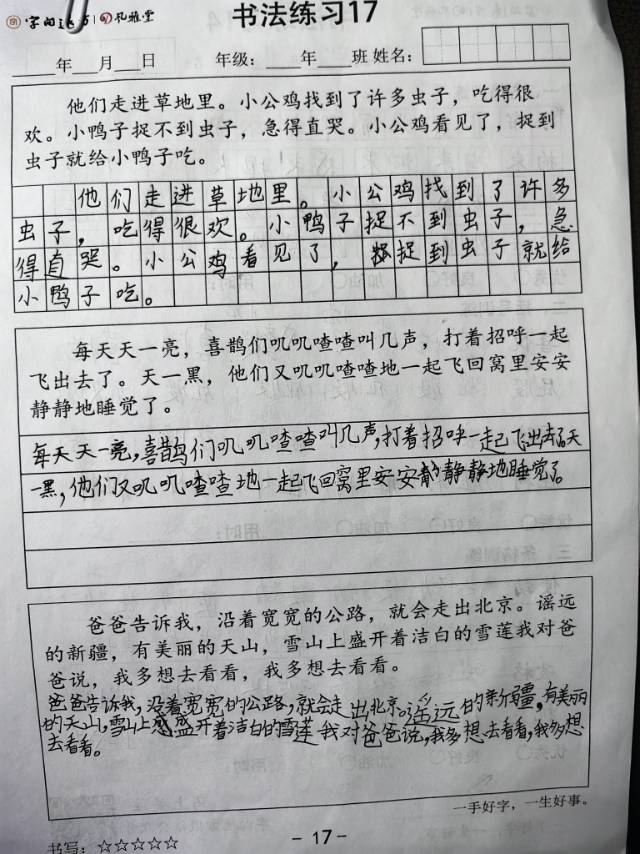 孔雅堂
书法练习17
____年___月___日 年级:____年____班 姓名:
他们走进草地里。小公鸡找到了许多虫子，吃得很
欢。小鸭子捉不到虫子，急得直哭。小公鸡看见了，捉到
虫子就给小鸭子吃。
他们走进草地里。小公鸡找到了许多
虫子，吃得很欢。小鸭子捉不到虫子，急
得直哭。小公鸡看见了，捉到虫子就给
小鸭子吃。
每天天一亮，喜鹊们叽叽喳喳叫几声，打着招呼一起
飞出去了。天一黑，他们又叽叽喳喳地一起飞回窝里安安
静静地睡觉了。
每天天一亮,喜鹊们叽叽喳喳叫几声,打着招呼一起飞出去了天
一黑,他们又叽叽喳喳地一起飞回窝里安安静静地睡觉了。
爸爸告诉我，沿着宽宽的公路，就会走出北京。遥远
的新疆，有美丽的天山，雪山上盛开着洁白的雪莲我对爸
爸说，我多想去看看，我多想去看看。
爸爸告诉我,沿着宽宽的公路,就会走出北京。遥远的新疆,有美丽
的天山,雪山上盛开着洁白的雪莲我对爸爸说,我多想去看看,我多想
去看看。
一手好字，一生好事。
书写:☆☆☆☆☆
- 17 -